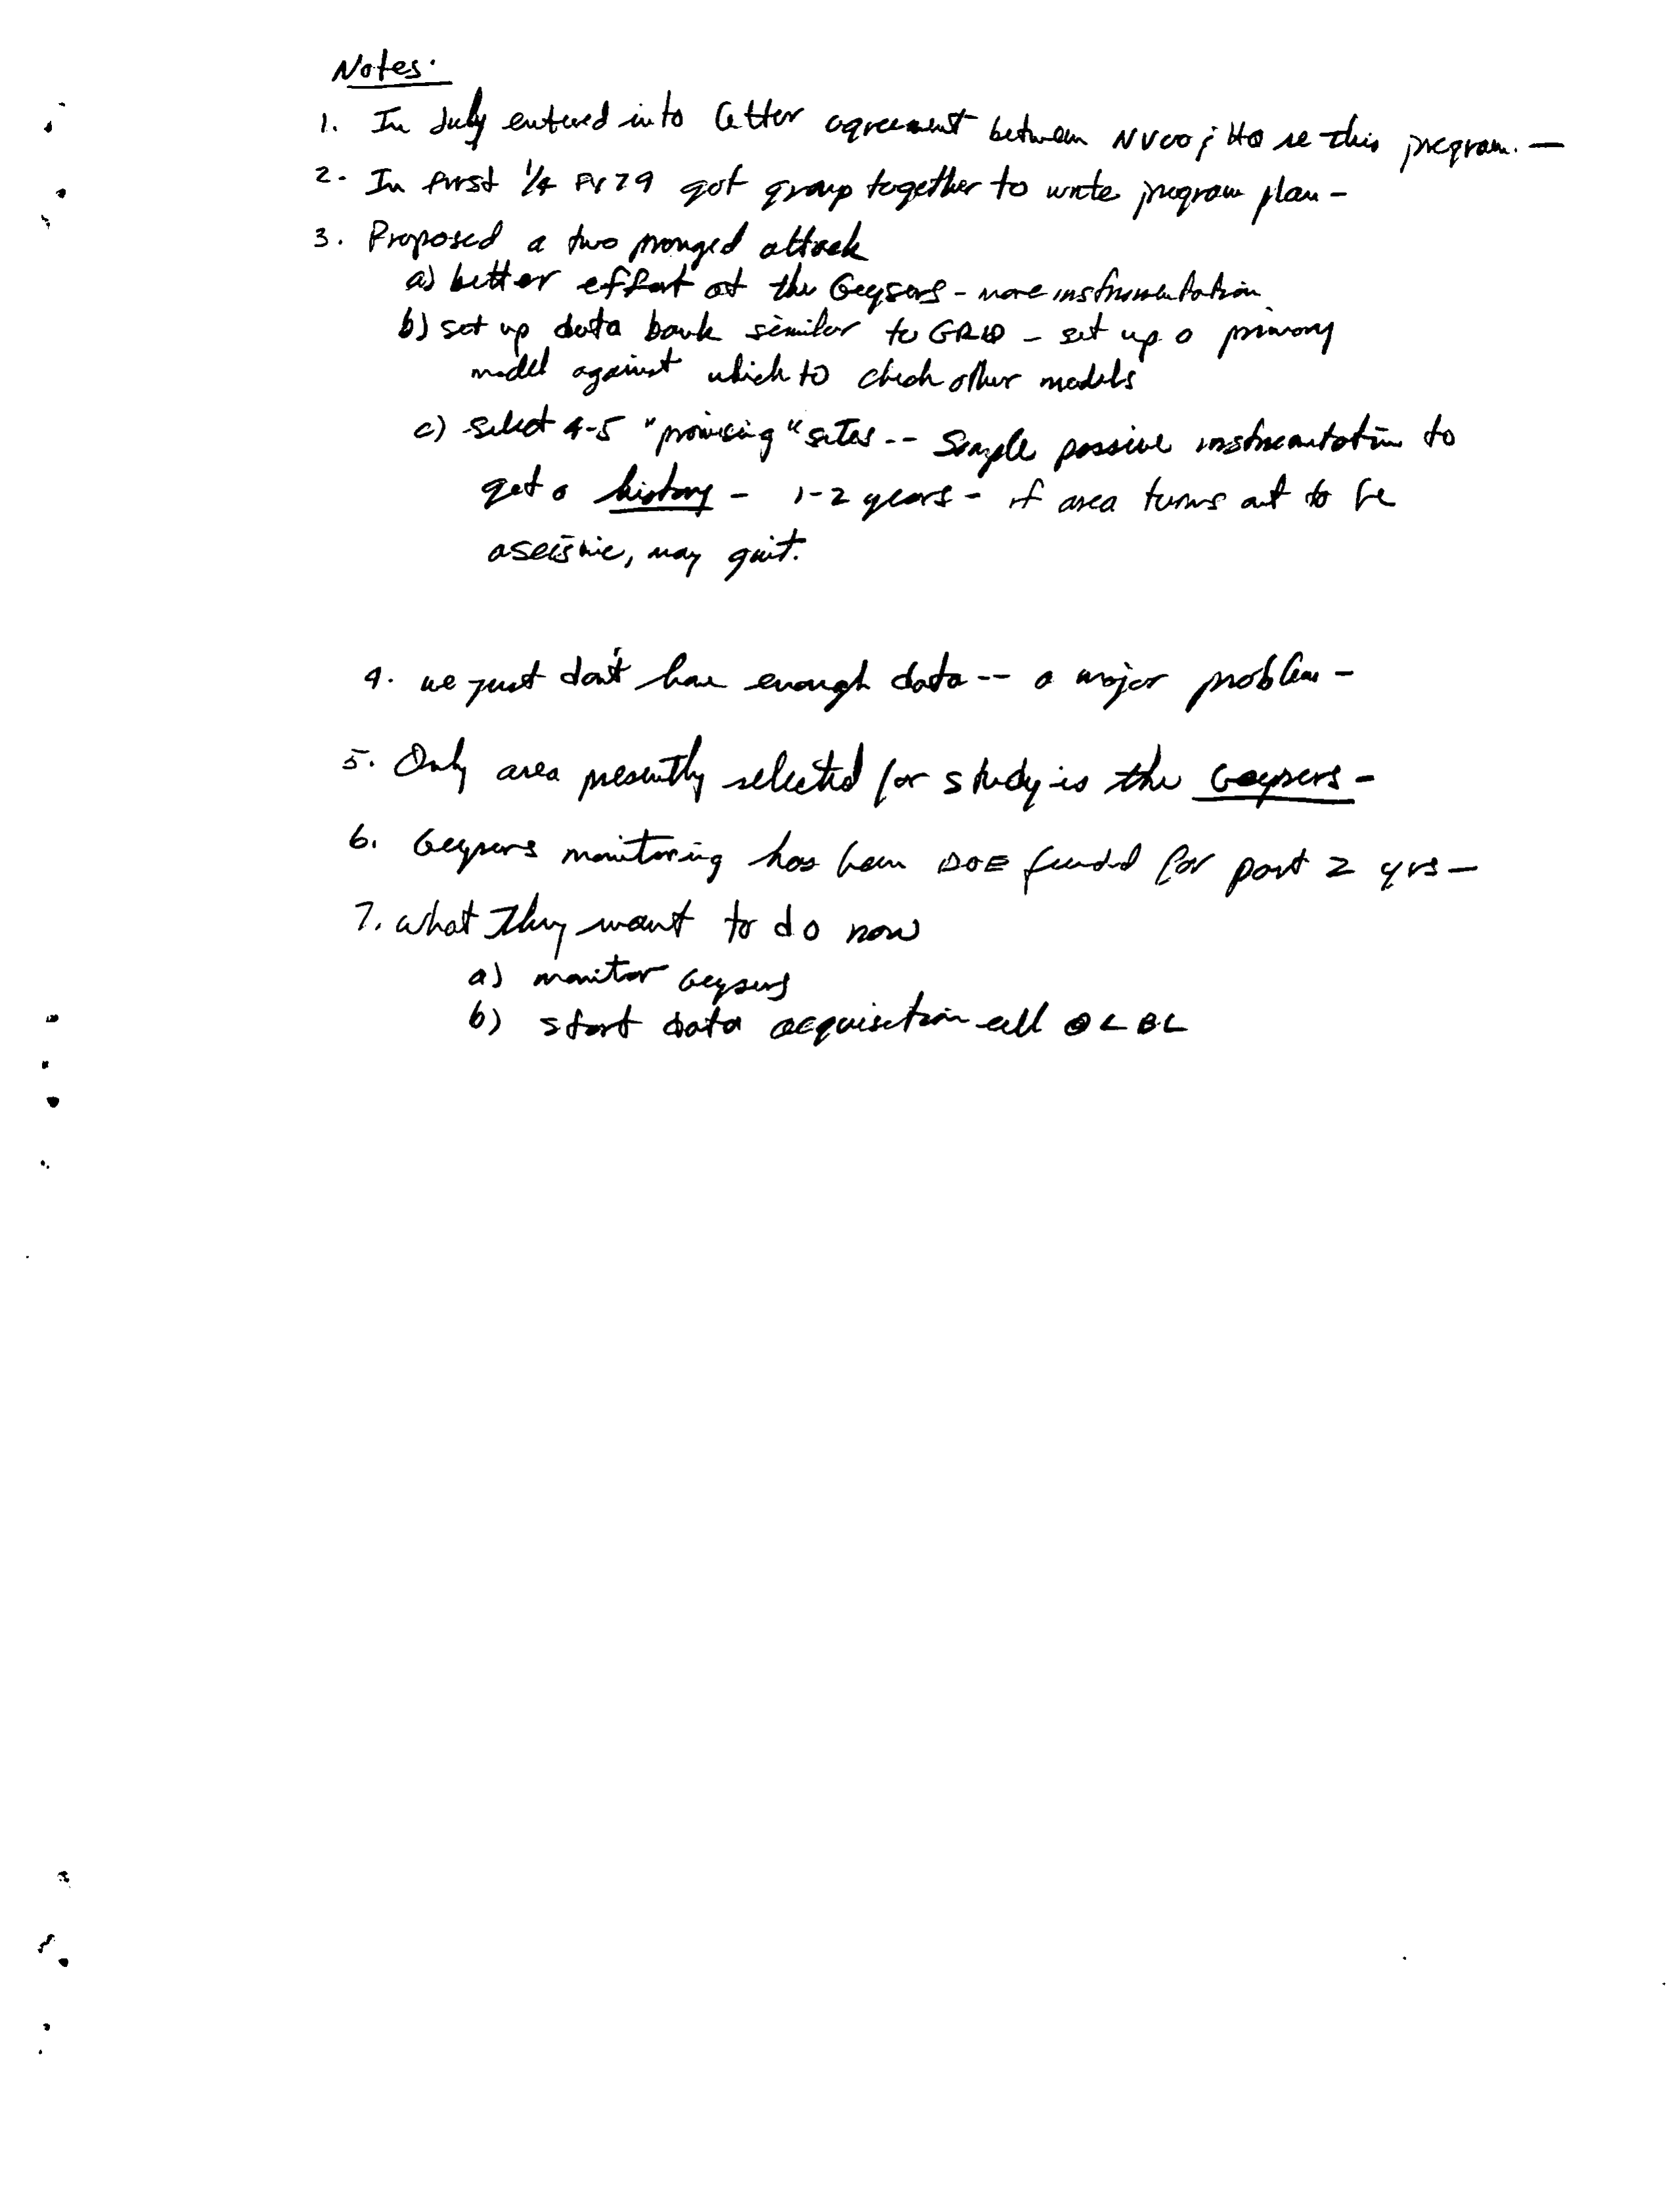 Notes.
1. In July entered into letter agreement between NVOO & HQ re this program. —
2. In first 1/4 FY 79 got group together to write program plan —
3. Proposed a two pronged attack
a) better effort at the Geysers - more instrumentation
b) set up data bank similar to GRID - set up a primary
model against which to check other models
c) select 4-5 "promising" sites -- Simple passive instrumentation to
get a history - 1-2 years - if area turns out to be
aseismic, may quit.
4. we just don't have enough data -- a major problem -
5. Only area presently selected for study is the Geysers -
6. Geysers monitoring has been DOE funded for past 2 yrs -
7. what they want to do now
a) monitor Geysers
b) start data acquisition cell @ LBL